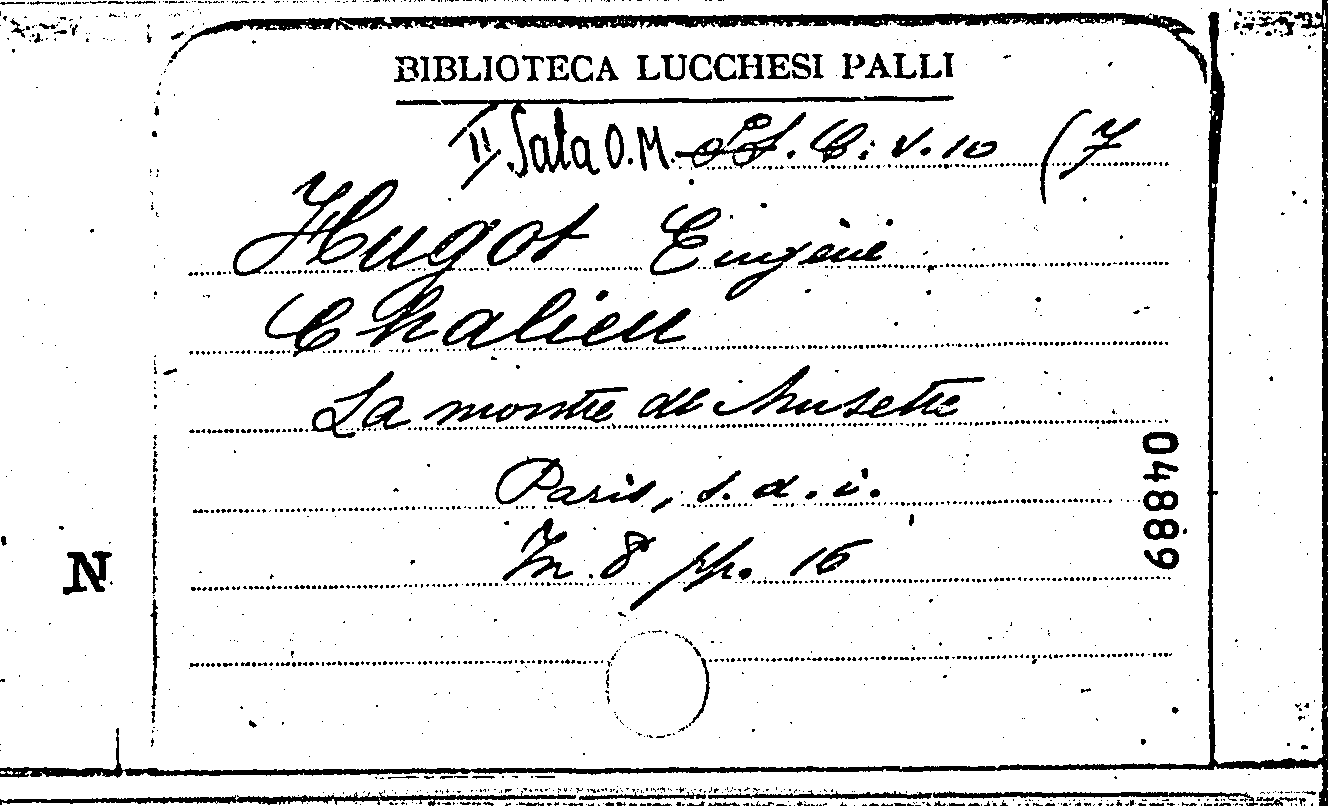 BIBLIOTECA LUCCHESI PALLI
II Sala O.M. St. C. V. 10 (7
Hugot Eugène
Chalieu
La montre de Musette
Paris, s. d. i.
In 8 pp. 16
04889
N